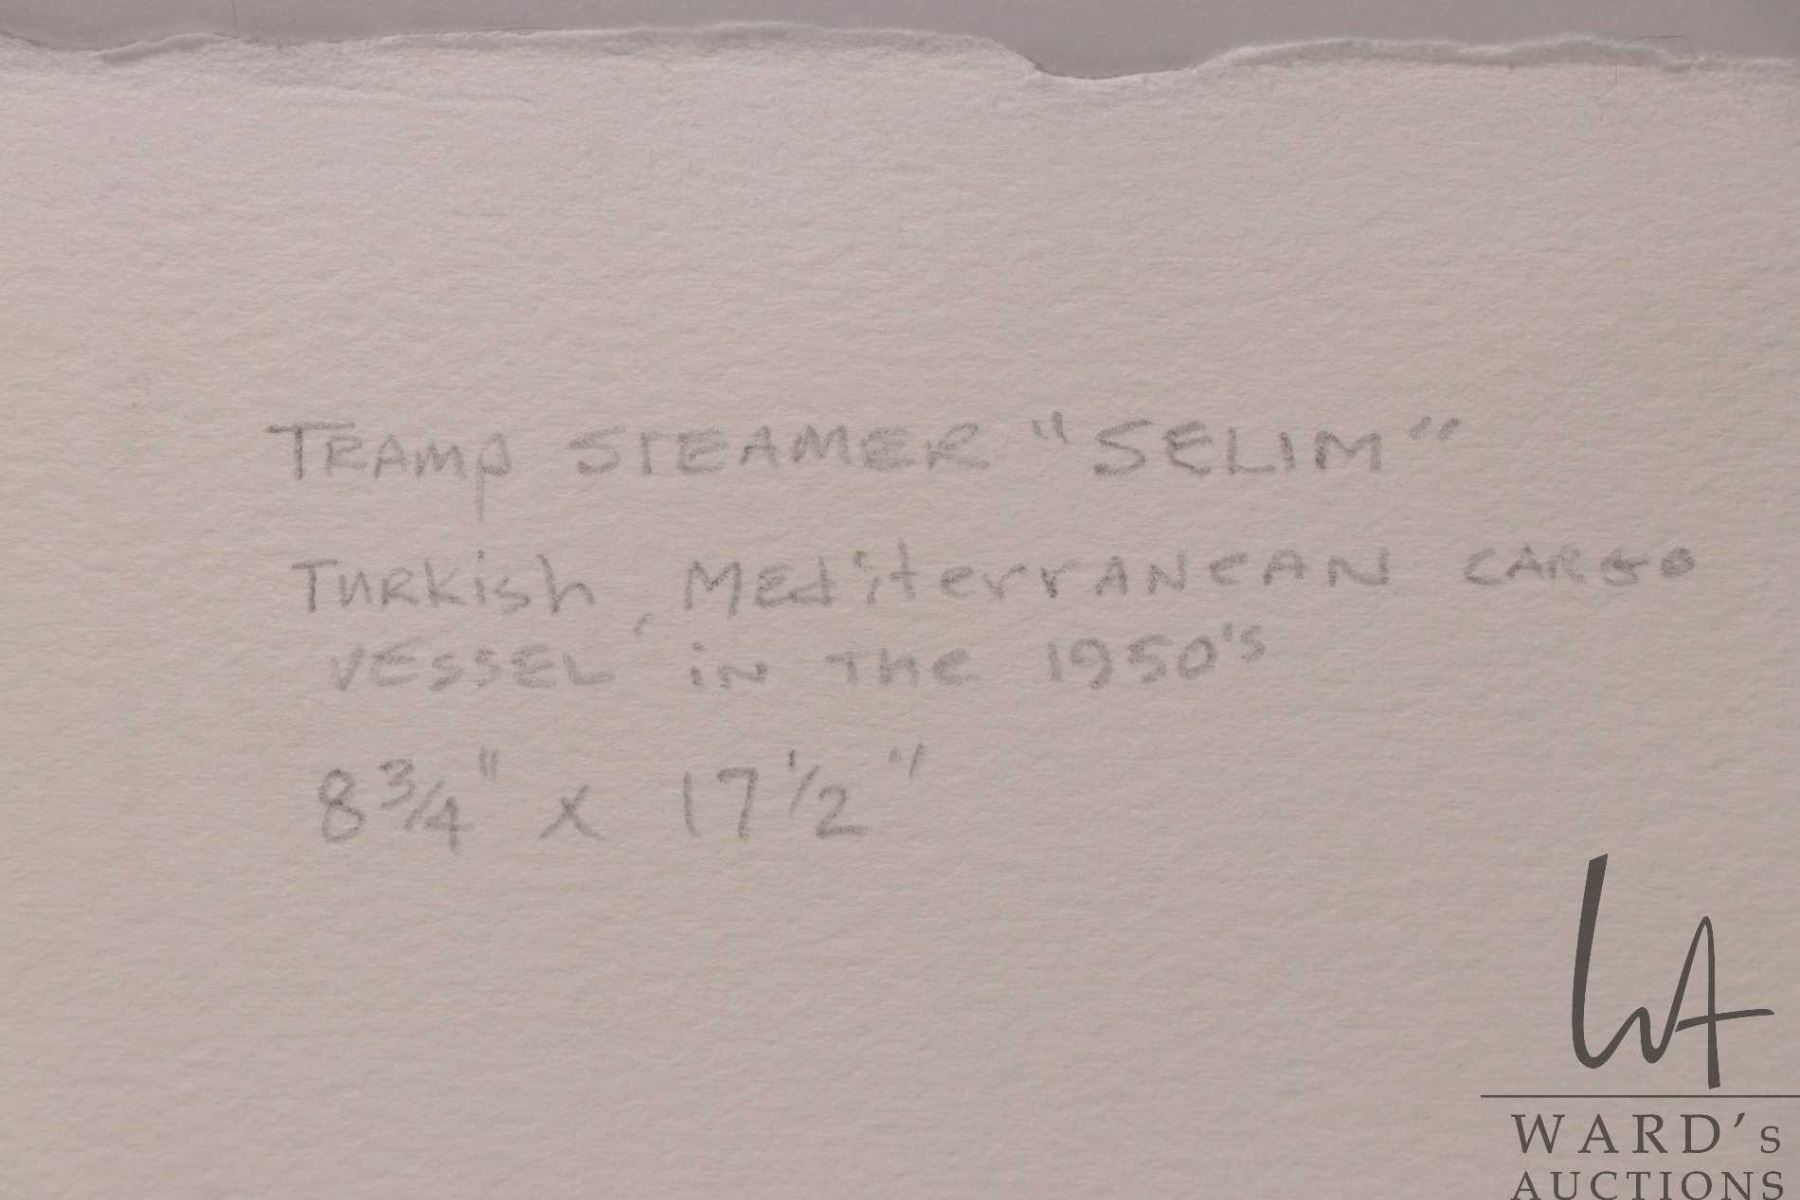 TRAMP STEAMER "SELIM"
Turkish, MEditerrANeAN CARGO
VESSEL in The 1950's
8 3/4" x 17 1/2"
WA
WARD's
AUCTIONS